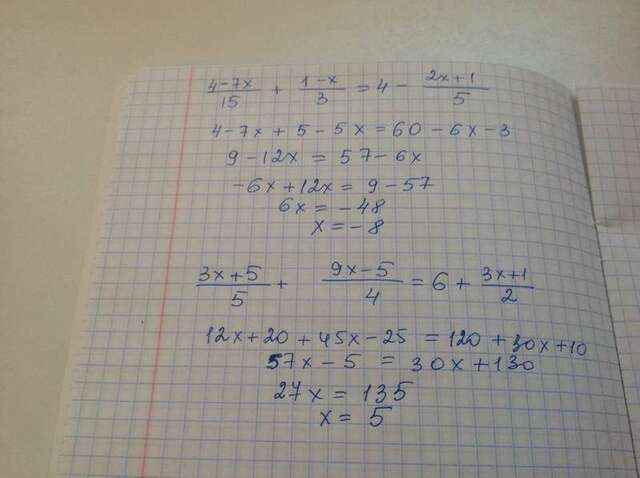 (4-7x)/15 + (1-x)/3 = 4 - (2x+1)/5
4-7x + 5 - 5x = 60 - 6x - 3
9 - 12x = 57 - 6x
-6x + 12x = 9 - 57
6x = -48
x = -8
(3x+5)/5 + (9x-5)/4 = 6 + (3x+1)/2
12x + 20 + 45x - 25 = 120 + 30x + 10
57x - 5 = 30x + 130
27x = 135
x = 5